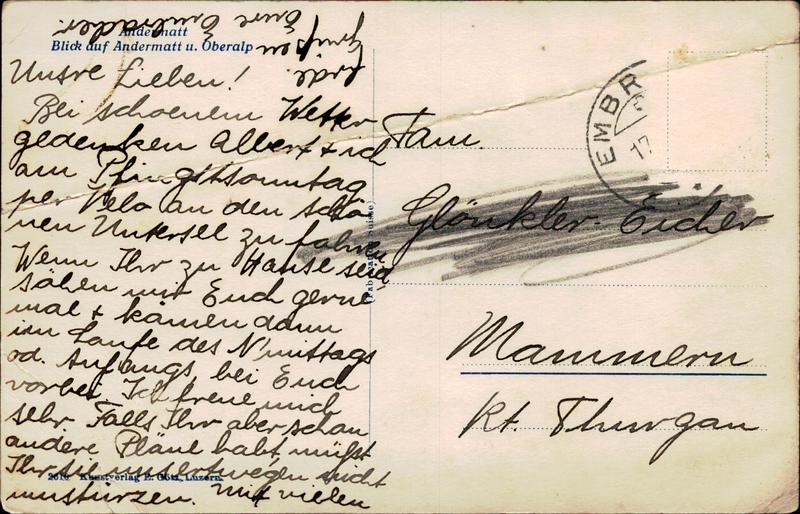 Andermatt
Blick auf Andermatt u. Oberalp
Unsre Lieben!
Bei schoenem Wetter
gedenken Albert + ich
am Pfingstsonntag
per Velo an den schö-
nen Untersee zu fahren
Wenn Ihr zu Hause seid
sähen wir Euch gerne
mal + kämen dann
im Laufe des N'mittags
od. Anfangs bei Euch
vorbei. Ich freue mich
sehr. Falls Ihr aber schon
andere Pläne habt müsst
Ihr sie unsertwegen nicht
umstürzen. Mit vielen
Grüssen
Eure
2616 Kunstverlag E. Götz, Luzern
EMBR
17
Fam.
Glönkler-Eicher
Mammern
Kt. Thurgau